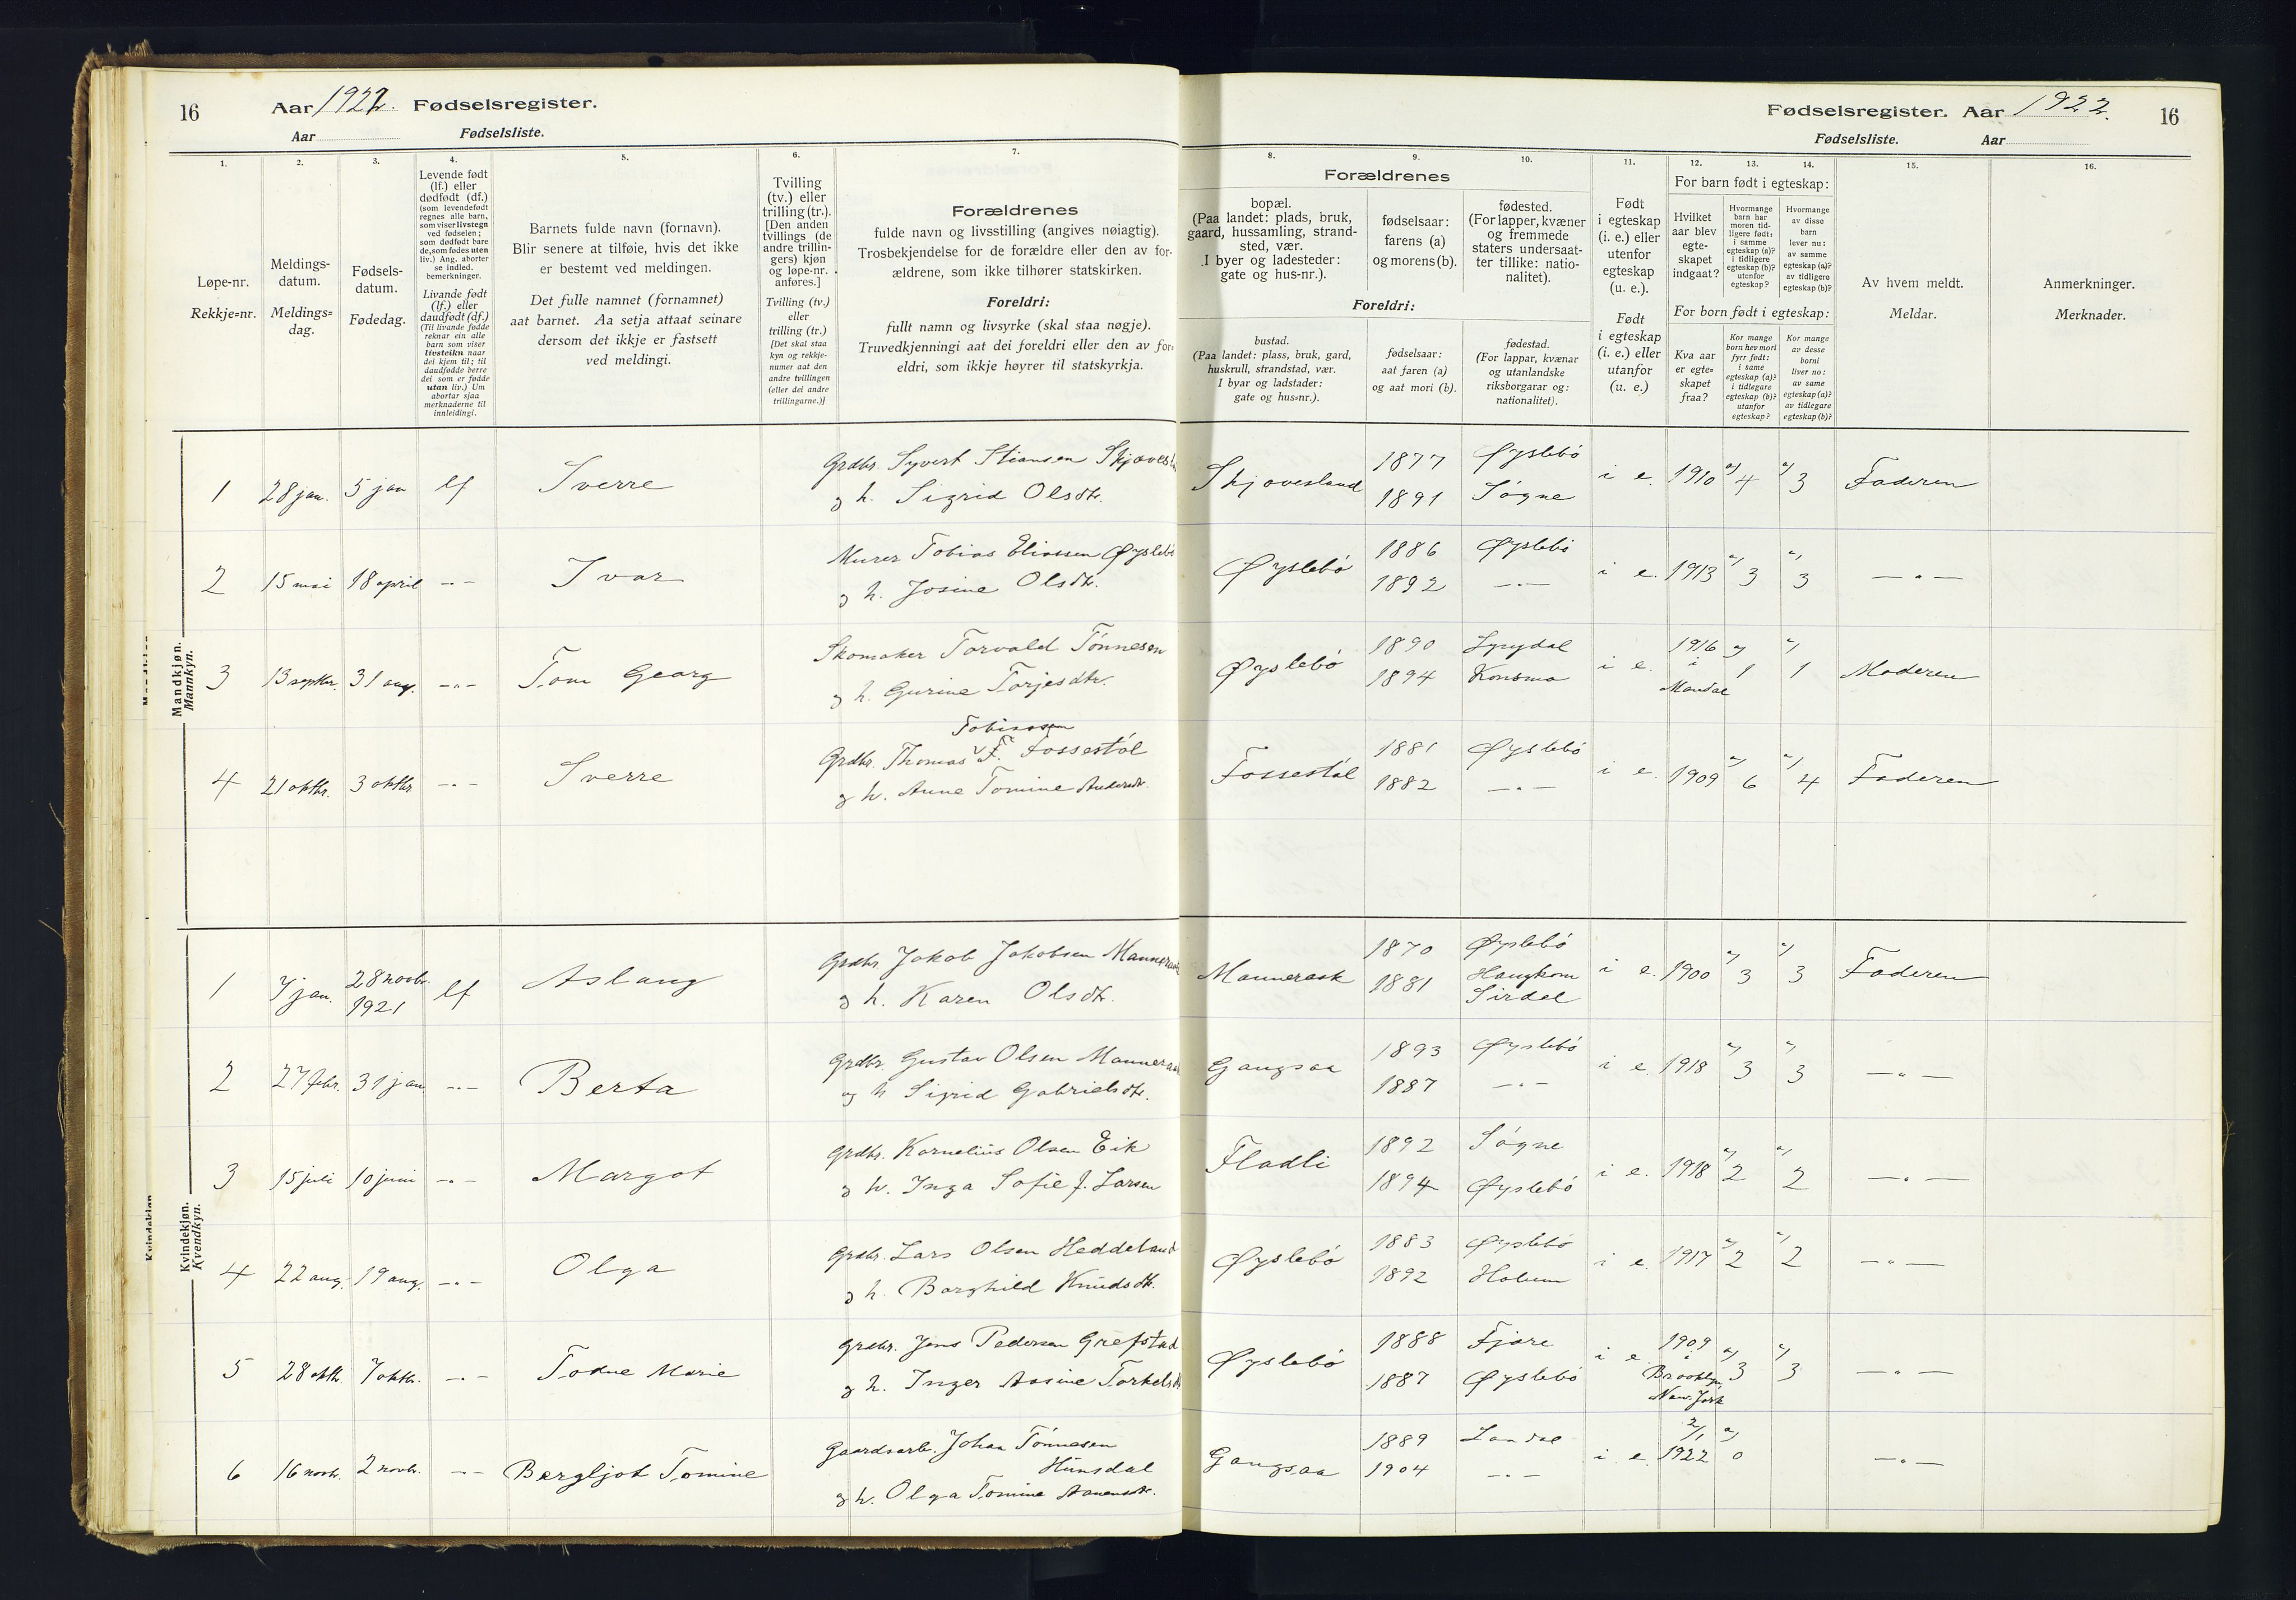 16
Aar 1922. Fødselsregister.
Aar Fødselsliste.
1.
2.
3.
4.
5.
6.
7.
Løpe-nr.
Rekkje=nr.
Meldings-
datum.
Meldings=
dag.
Fødsels-
datum.
Fødedag.
Levende født
(lf.) eller
dødfødt (df.)
(som levendefødt
regnes alle barn,
som viser livstegn
ved fødselen;
som dødfødt bare
de, som fødes uten
liv.) Ang. aborter
se indled.
bemerkninger.
Livande født
(lf.) eller
daudfødt (df.)
(Til livande fødde
reknar ein alle
barn som viser
livsteikn naar
dei kjem til; til
daudfødde berre
dei som er fødde
utan liv.) Um
abortar sjaa
merknaderne til
innleidingi.
Barnets fulde navn (fornavn).
Blir senere at tilføie, hvis det ikke
er bestemt ved meldingen.
Det fulle namnet (fornamnet)
aat barnet. Aa setja attaat seinare
dersom det ikkje er fastsett
ved meldingi.
Tvilling
(tv.) eller
trilling (tr.).
[Den anden
tvillings (de
andre trillin-
gers) kjøn
og løpe-nr.
anføres.]
Tvilling (tv.)
eller
trilling (tr.)
[Det skal staa
kyn og rekkje-
numer aat den
andre tvillingen
(eller dei andre
trillingarne.)]
Forældrenes
fulde navn og livsstilling (angives nøiagtig).
Trosbekjendelse for de forældre eller den av for-
ældrene, som ikke tilhører statskirken.
Foreldri:
fullt namn og livsyrke (skal staa nøgje).
Truvedkjenningi aat dei foreldri eller den av for=
eldri, som ikkje høyrer til statskyrkja.
Fødselsregister. Aar 1922.
16
Fødselsliste. Aar
8.
9.
10.
11.
12.
13.
14.
15.
16.
Forældrenes
bopæl.
(Paa landet: plads, bruk,
gaard, hussamling, strand-
sted, vær.
I byer og ladesteder:
gate og hus-nr.).
fødselsaar:
farens (a)
og morens (b).
fødested.
(For lapper, kvæner
og fremmede
staters undersaat-
ter tillike: natio-
nalitet).
Foreldri:
bustad.
(Paa landet: plass, bruk, gard,
huskrull, strandstad, vær.
I byar og ladstader:
gate og hus=nr.).
fødselsaar:
aat faren (a)
og aat mori (b).
fødestad.
(For lappar, kvænar
og utanlandske
riksborgarar og:
nationalitet).
Født
i egteskap
(i. e.) eller
utenfor
egteskap
(u. e.).
Født
i egteskap
(i. e.) eller
utanfor
(u. e.)
For barn født i egteskap:
Hvilket
aar blev
egte-
skapet
indgaat?
Hvormange
barn har
moren tid-
ligere født:
i samme
egteskap (a)?
i tidligere
egteskap (b)?
utenfor
egteskap?
Hvormange
av disse
barn
lever nu:
av samme
egteskap (a)?
av tidligere
egteskap (b)?
For born født i egteskap:
Kva aar
er egte=
skapet
fraa?
Kor mange
born hev mori
fyrr født:
i same
egteskap (a)?
i tidlegare
egteskap (b)?
utanfor
egteskap?
Kor mange
av desse
borni
liver no:
av same
egteskap (a)?
av tidlegare
egteskap (b)?
Av hvem meldt.
Meldar.
Anmerkninger.
Merknader.
Mandkjøn.
Mannkyn.
1 28 jan. 5 jan lf Sverre Grdbr. Syvert Stiansen Skjovesl
og h. Sigrid Olsdtr.
Skjovesland 1877 Øyslebö i e. 1910 a) 4 a) 3 Faderen
1891 Søgne
2 15 mai 18 april -"- Ivar Murer Tobias Eliassen Øyslebö
og h. Josine Olsdtr.
Øyslebö 1886 Øyslebö i e. 1913 a) 3 a) 3 -"-
1892 -"-
3 13 septbr. 31 aug. -"- Tom Georg Skomaker Torvald Tönnesen
og h. Gurine Torjesdtr.
Øyslebö 1890 Lyngdal i e. 1916 i Mandal a) 1 a) 1 Moderen
1894 Konsmo
4 21 oktbr. 3 oktbr -"- Sverre Tobiassen
Grdbr. Thomas F. Fossestöl
og h. Anne Tomine Andersdtr.
Fossestöl 1881 Øyslebö i e. 1909 a) 6 a) 4 Faderen
1882 -"-
Kvindekjøn.
Kvendkyn.
1 7 jan. 28 novbr. 1921 lf Aslaug Grdbr. Jakob Jakobsen Mannerak
og h. Karen Olsdtr.
Mannerask 1870 Øyslebö i e. 1900 a) 3 a) 3 Faderen
1881 Haughom
Sirdal
2 27 febr. 31 jan -"- Berta Grdbr. Gustav Olsen Mannerak
og h Sigrid Gabrielsdtr.
Gangsaa 1893 Øyslebö i e. 1918 a) 3 a) 3 -"-
1887 -"-
3 15 juli 10 juni -"- Margot Grdbr. Kornelius Olsen Eik
og h. Inga Sofie f. Larsen
Fladli 1892 Søgne i e. 1918 a) 2 a) 2 -"-
1894 Øyslebö
4 22 aug. 19 aug. -"- Olga Grdbr. Lars Olsen Heddeland
og h. Borghild Knudsdtr.
Øyslebö 1883 Øyslebö i e. 1917 a) 2 a) 2 -"-
1892 Holum
5 28 oktb. 7 oktbr. -"- Todne Marie Grdbr. Jens Pedersen Grefstad
og h. Inger Aasine Torkelsdt
Øyslebö 1888 Fjære i e 1909 i Brooklyn, New York a) 3 a) 3 -"-
1887 Øyslebö
6 16 novbr. 2 novbr. -"- Bergljot Tomine Gaardsarb. Johan Tönnesen
Hunsdal
og h. Olga Tomine Aanensdtr.
Gangsaa 1889 Laudal i e. 2/1 1922 a) 0 -"-
1904 -"-